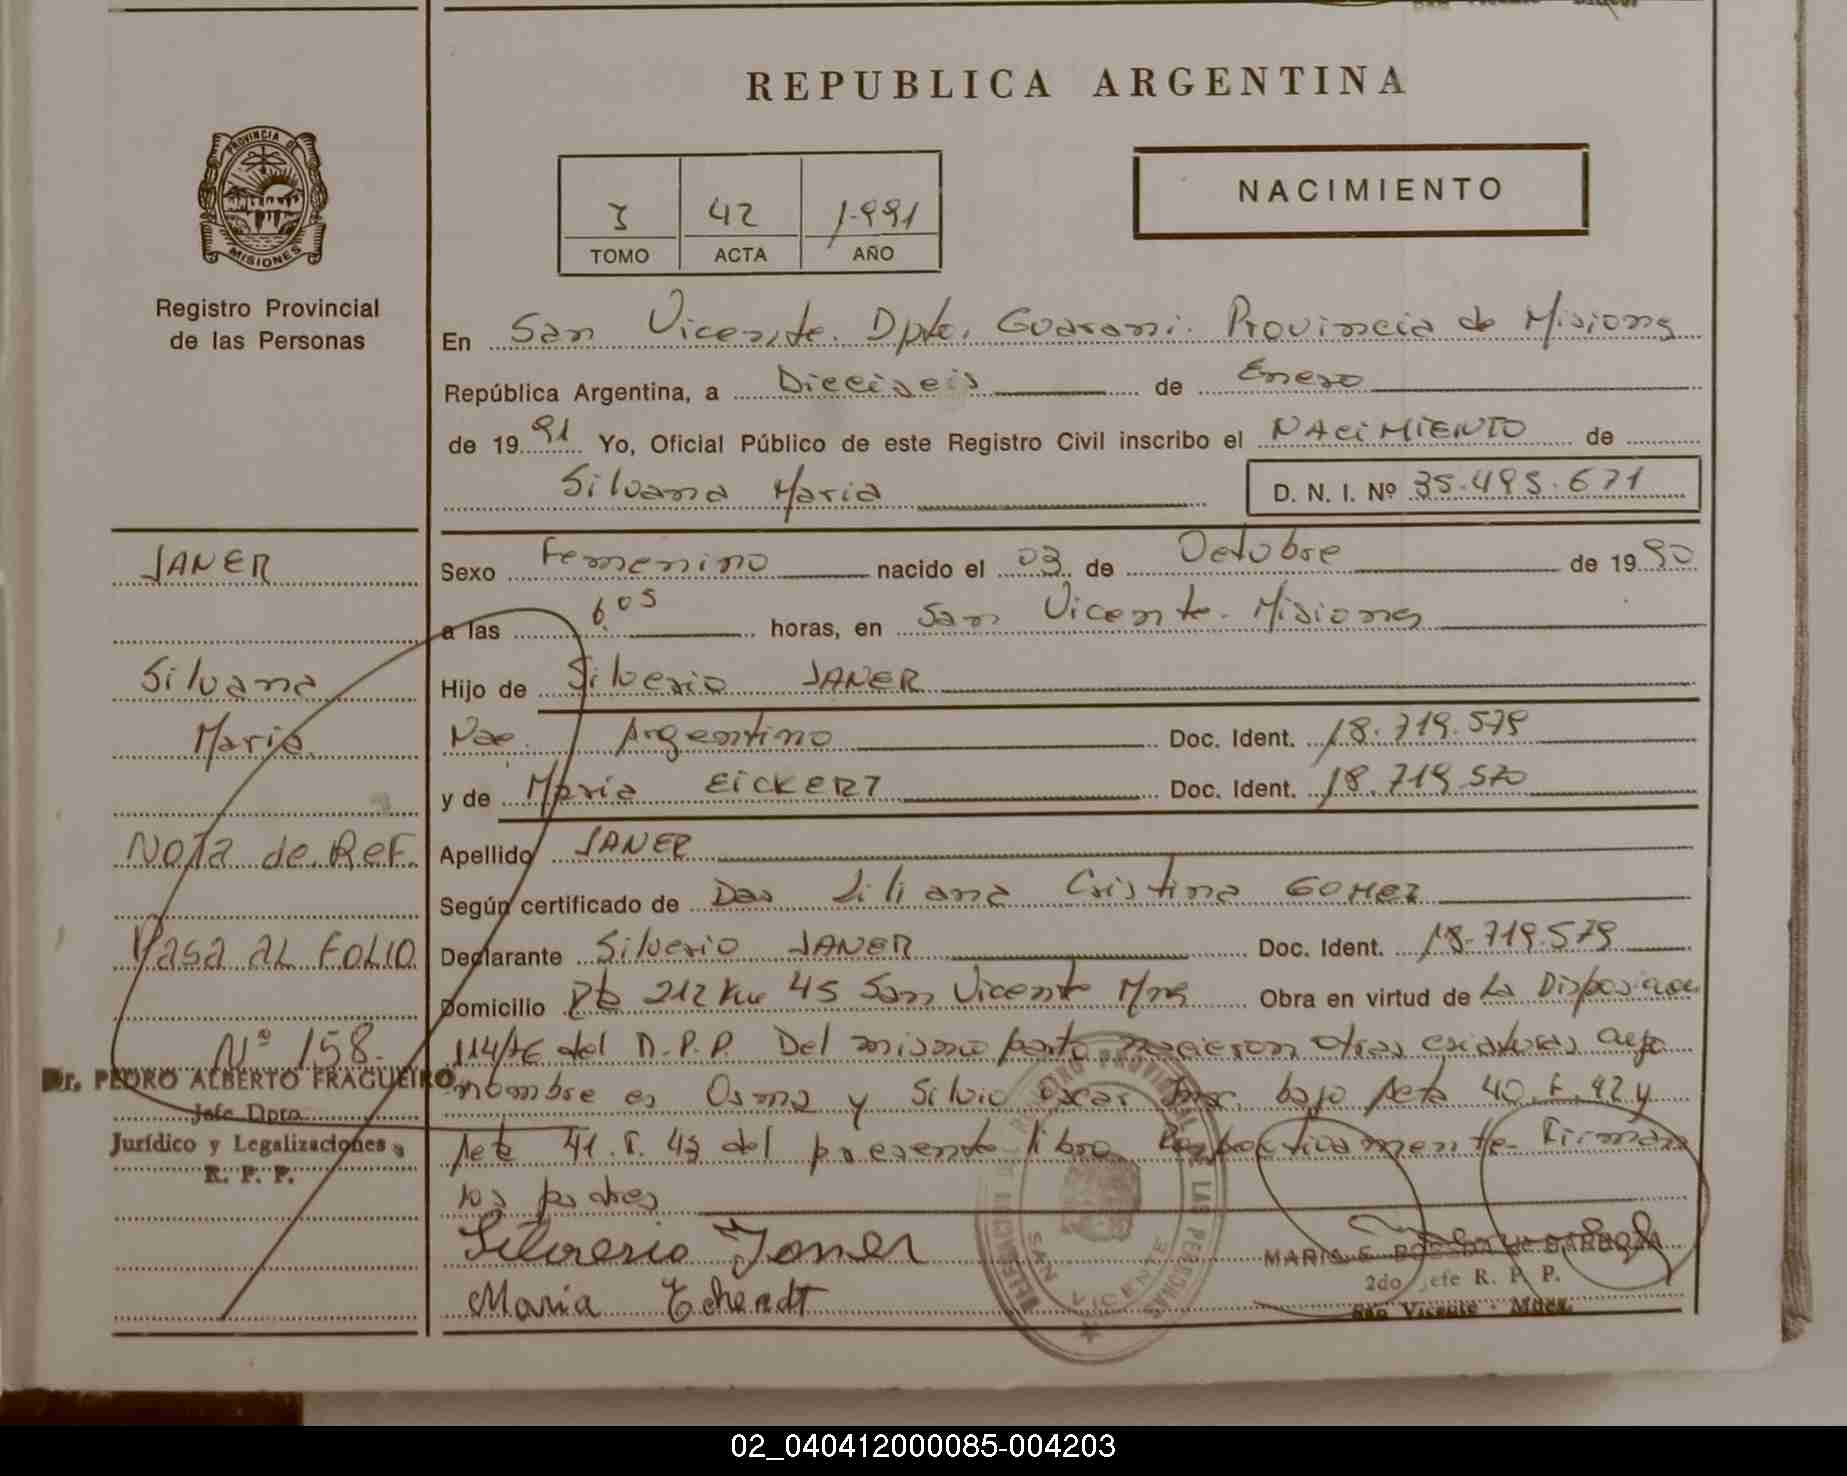 REPUBLICA ARGENTINA
PROVINCIA DE MISIONES
Registro Provincial
de las Personas
42 1991
TOMO ACTA AÑO
NACIMIENTO
En San Vicente. Dpto. Guarani. Provincia de Misiones
República Argentina, a Dieciseis de Enero
de 1991 Yo, Oficial Público de este Registro Civil inscribo el NACIMIENTO de
Silvana Maria D. N. I. Nº 35.495.671
JANER
Silvana
Maria.
Nota de Ref.
Pasa al Folio
Nº 158.
Dr. PEDRO ALBERTO FRAGUEIRO
Jefe Dpto.
Jurídico y Legalizaciones
R. P. P.
Sexo Femenino nacido el 03 de Octubre de 1990
a las 6.05 horas, en San Vicente. Misiones
Hijo de Silverio JANER
Nac. Argentino Doc. Ident. 18.719.579
y de Maria EICKERT Doc. Ident. 18.719.570
Apellido JANER
Según certificado de Dra Liliana Cristina GOMEZ
Declarante Silverio JANER Doc. Ident. 18.719.579
Domicilio Rta 212 Km 45 San Vicente Mnes Obra en virtud de La Disposicion
114/76 del R.P.P. Del mismo parto nacieron otras criaturas cuyo
nombre es Osmar y Silvio Oscar bajo Acta 40.F.42 y
Acta 41.F.43 del presente libro Respectivamente. Firman
los padres
Silverio Janer
Maria Echerdt
REGISTRO PROVINCIAL DE LAS PERSONAS
SAN VICENTE
MARIA E. DE BARBOZA
2do Jefe R. P. P.
San Vicente - Mnes.
02_040412000085-004203